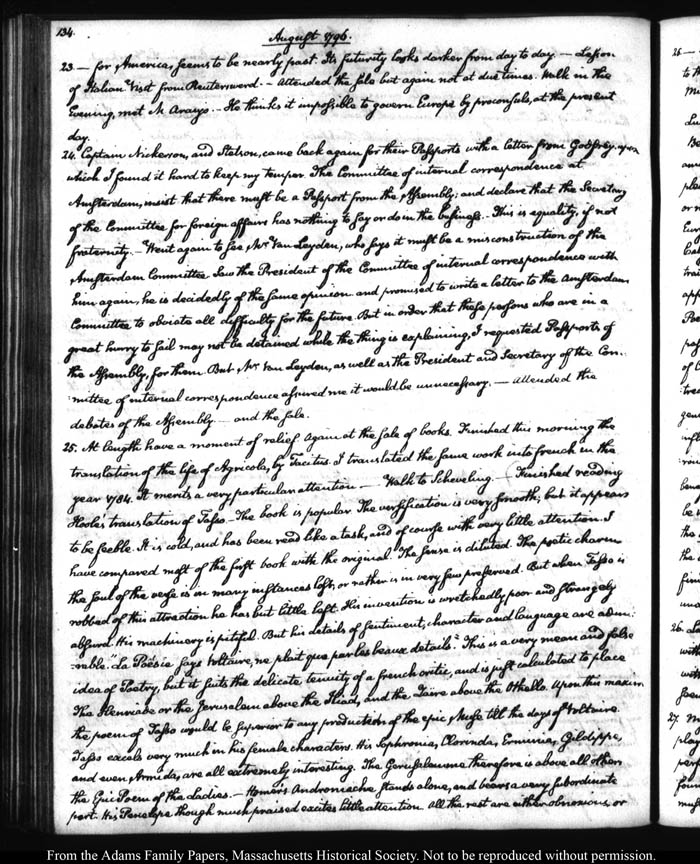 134.
August 1796.
23 — for America, seems to be nearly past. Its futurity looks darker from day to day. — Lesson
of Italian. Visit from Reuterswerd. — Attended the sale but again not at due times. Walk in the
Evening, met M. Araujo. — He thinks it impossible to govern Europe by proconsuls, at the present
day.
24. Captain Nickerson, and Stetson, came back again for their Passports with a letter from Godfrey, upon
which I found it hard to keep my temper. The Committee of internal correspondence at
Amsterdam, insist that there must be a Passport from the Assembly; and declare that the Secretary
of the Committee for foreign affairs has nothing to say or do in the business. — This is equality, if not
fraternity. — Went again to see, Mr. Van Leyden, who says it must be a misconstruction of the
Amsterdam Committee. Saw the President of the Committee of internal correspondence with
him again, he is decidedly of the same opinion and promised to write a letter to the Amsterdam
Committee to obviate all difficulty for the future. But in order that these persons who are in a
great hurry to sail may not be detained while the thing is explaining, I requested Passports of
the Assembly, for them. But Mr. Van Leyden, as well as the President and Secretary of the Com-
mittee of internal correspondence assured me it would be unnecessary. — Attended the
debates of the Assembly — and the sale.
25. At length have a moment of relief. Again at the sale of books. Finished this morning the
translation of the life of Agricola, by Tacitus. I translated the same work into french in the
year 1784. It merits a very particular attention. — Walk to Scheveling. — Finished reading
Hoole's translation of Tasso. — The book is popular. The versification is very smooth, but it appears
to be feeble. It is cold, and has been read like a task, and of course with very little attention. I
have compared most of the first book with the original. The sense is diluted. The poetic charm
the soul of the verse is in many instances lost, or rather is in very few preserved. But when Tasso is
robbed of this attraction he has but little left. His invention is wretchedly poor and strangely
absurd. His machinery is pitiful. But his details of sentiment, character and language are admi-
rable. "La Poësie says Voltaire, ne plait que par les beaux details." This is a very mean and false
idea of Poetry, but it suits the delicate tenuity of a french critic, and is just calculated to place
The Henriade or the Jerusalem above the Iliad, and the Zaire above the Othello. Upon this maxim
the poem of Tasso would be superior to any production of the epic Muse till the days of Voltaire.
Tasso excels very much in his female characters. His Sophronia, Clorinda, Erminia, Gildippe,
and even Armida, are all extremely interesting. The Gerusalemme therefore is above all other
the Epic Poem of the Ladies. — Homer's Andromache stands alone, and bears a very subordinate
part. His Penelope though much praised excites little attention. All the rest are either obnoxious, or
26
26.
27.
From the Adams Family Papers, Massachusetts Historical Society. Not to be reproduced without permission.